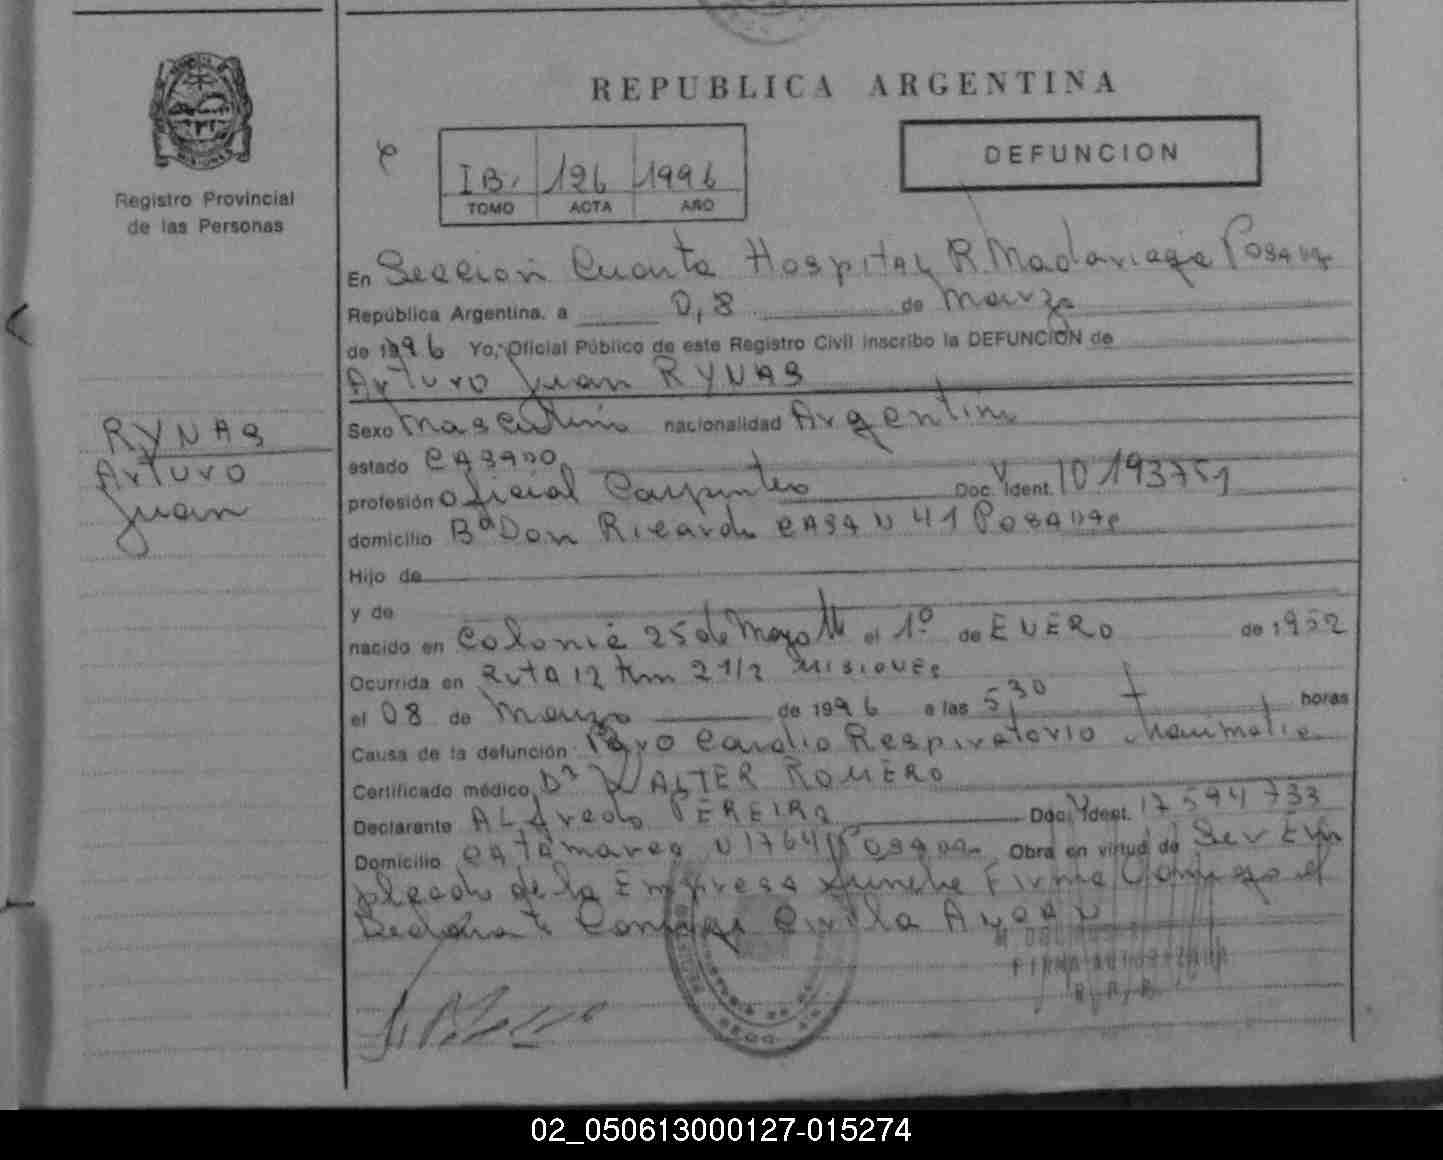 REPUBLICA ARGENTINA
DEFUNCION
IB, 126 1996
TOMO ACTA AÑO
Registro Provincial
de las Personas
En Seccion Cuarta Hospital R. Madariaga Posadas
República Argentina, a 0,8 de Marzo
de 1996 Yo, Oficial Público de este Registro Civil inscribo la DEFUNCION de
Arturo Juan RYNAS
RYNAS
Arturo
Juan
Sexo Masculino nacionalidad Argentino
estado CASADO
profesión Oficial Carpintero Doc. Ident. 10193751
domicilio Bº Don Ricardo CASA N 41 POSADAS
Hijo de
y de
nacido en Colonia 25 de Mayo el 1º de ENERO de 1952
Ocurrida en RUTA 12 Km 2 1/2 MISIONES
el 08 de Marzo de 1996 a las 5,30 horas
Causa de la defunción Paro Cardio Respiratorio
Certificado médico Dr WALTER ROMERO
Declarante ALfredo PEREIRA Doc. Ident. 17594733
Domicilio CATAmarca N 1764 Posadas Obra en virtud de Ser Em
pleado de la Empresa Firma Conmigo el
Declarante
FIRMA AUTORIZADA
02_050613000127-015274